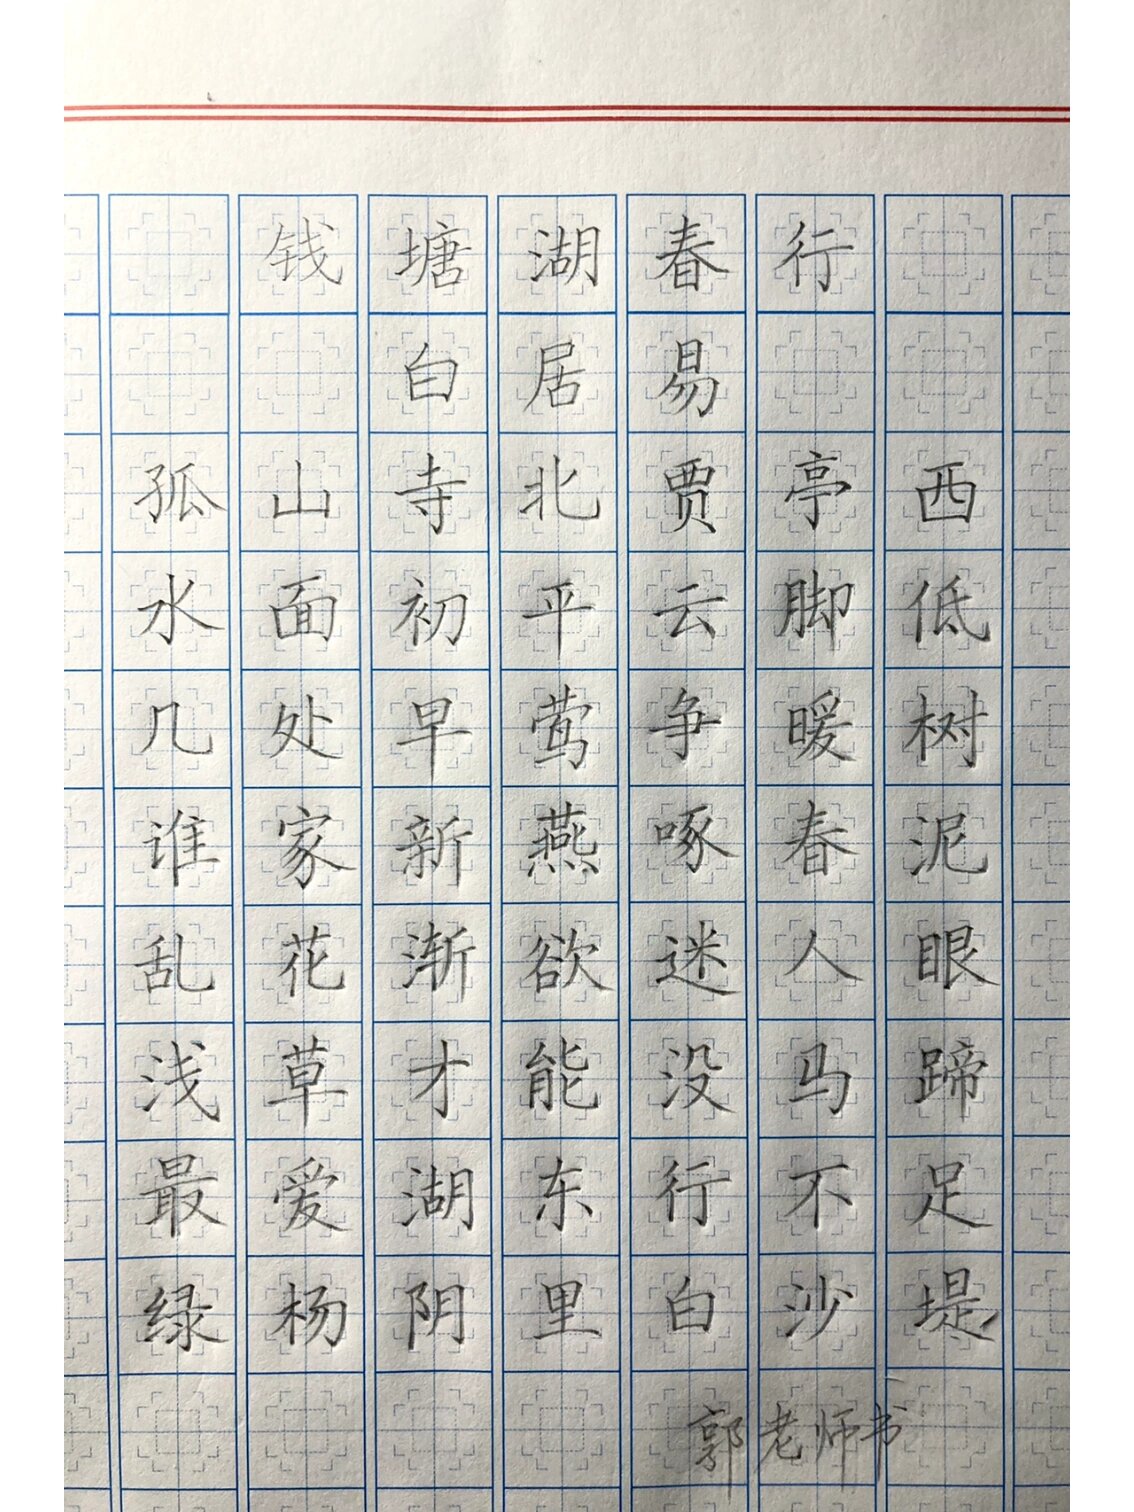 钱塘湖春行
白居易
孤山寺北贾亭西
水面初平云脚低
几处早莺争暖树
谁家新燕啄春泥
乱花渐欲迷人眼
浅草才能没马蹄
最爱湖东行不足
绿杨阴里白沙堤
郭老师书